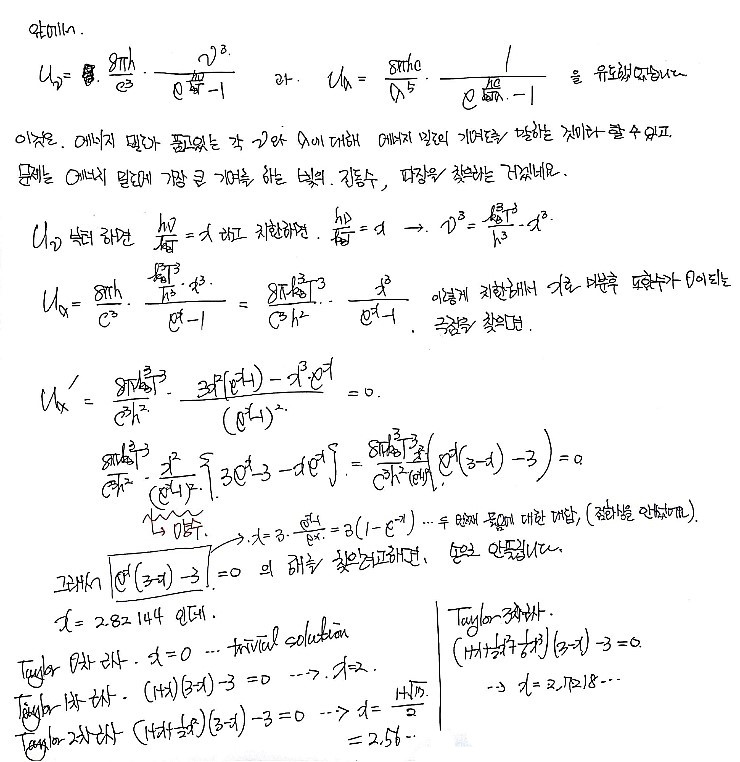 앞에서.
U_ν = 8πh/c³ · ν³/(e^(hν/k_BT) - 1) 과. U_λ = 8πhc/λ⁵ · 1/(e^(hc/k_BTλ) - 1) 을 유도했었습니다
이것은. 에너지 밀도가 품고있는 각 ν와 λ에 대해 에너지 밀도의 기여도를 말하는 것이라 할 수 있고.
문제는 에너지 밀도에 가장 큰 기여를 하는 빛의. 진동수, 파장을 찾으라는 거겠네요.
U_ν 부터 하면 hν/k_BT = x 라고 치환하면. hν/k_BT = x → ν³ = k_B³T³/h³ · x³.
U_x = 8πh/c³ · (k_B³T³/h³ · x³)/(e^x - 1) = 8πk_B³T³/c³h² · x³/(e^x - 1). 이렇게 치환해서 x로 미분후 도함수가 0이 되는
극점을 찾으면.
U_x′ = 8πk_B³T³/c³h² · (3x²(e^x - 1) - x³·e^x)/(e^x - 1)² = 0.
8πk_B³T³/c³h² · x²/(e^x - 1)² {3e^x - 3 - xe^x}. = 8πk_B³T³/c³h² · x²/(e^x - 1)² (e^x(3 - x) - 3) = 0
↳ 양수.
→ x = 3 · (e^x - 1)/e^x = 3(1 - e^-x) … 두 번째 물음에 대한 대답,
그래서 e^x(3 - x) - 3 = 0 의 해를 찾으려고하면, 손으로 안풀립니다.
x = 2.82144 인데.
Taylor 0차근사. x = 0 … trivial solution
Taylor 1차근사. (1+x)(3-x) - 3 = 0 ⋯→ x = 2.
Taylor 2차근사 (1+x+½x²)(3-x) - 3 = 0 ⋯→ x = (1+√17)/2
= 2.56…
Taylor 3차근사.
(1+x+½x²+⅙x³)(3-x) - 3 = 0.
⋯→ x = 2.7218…